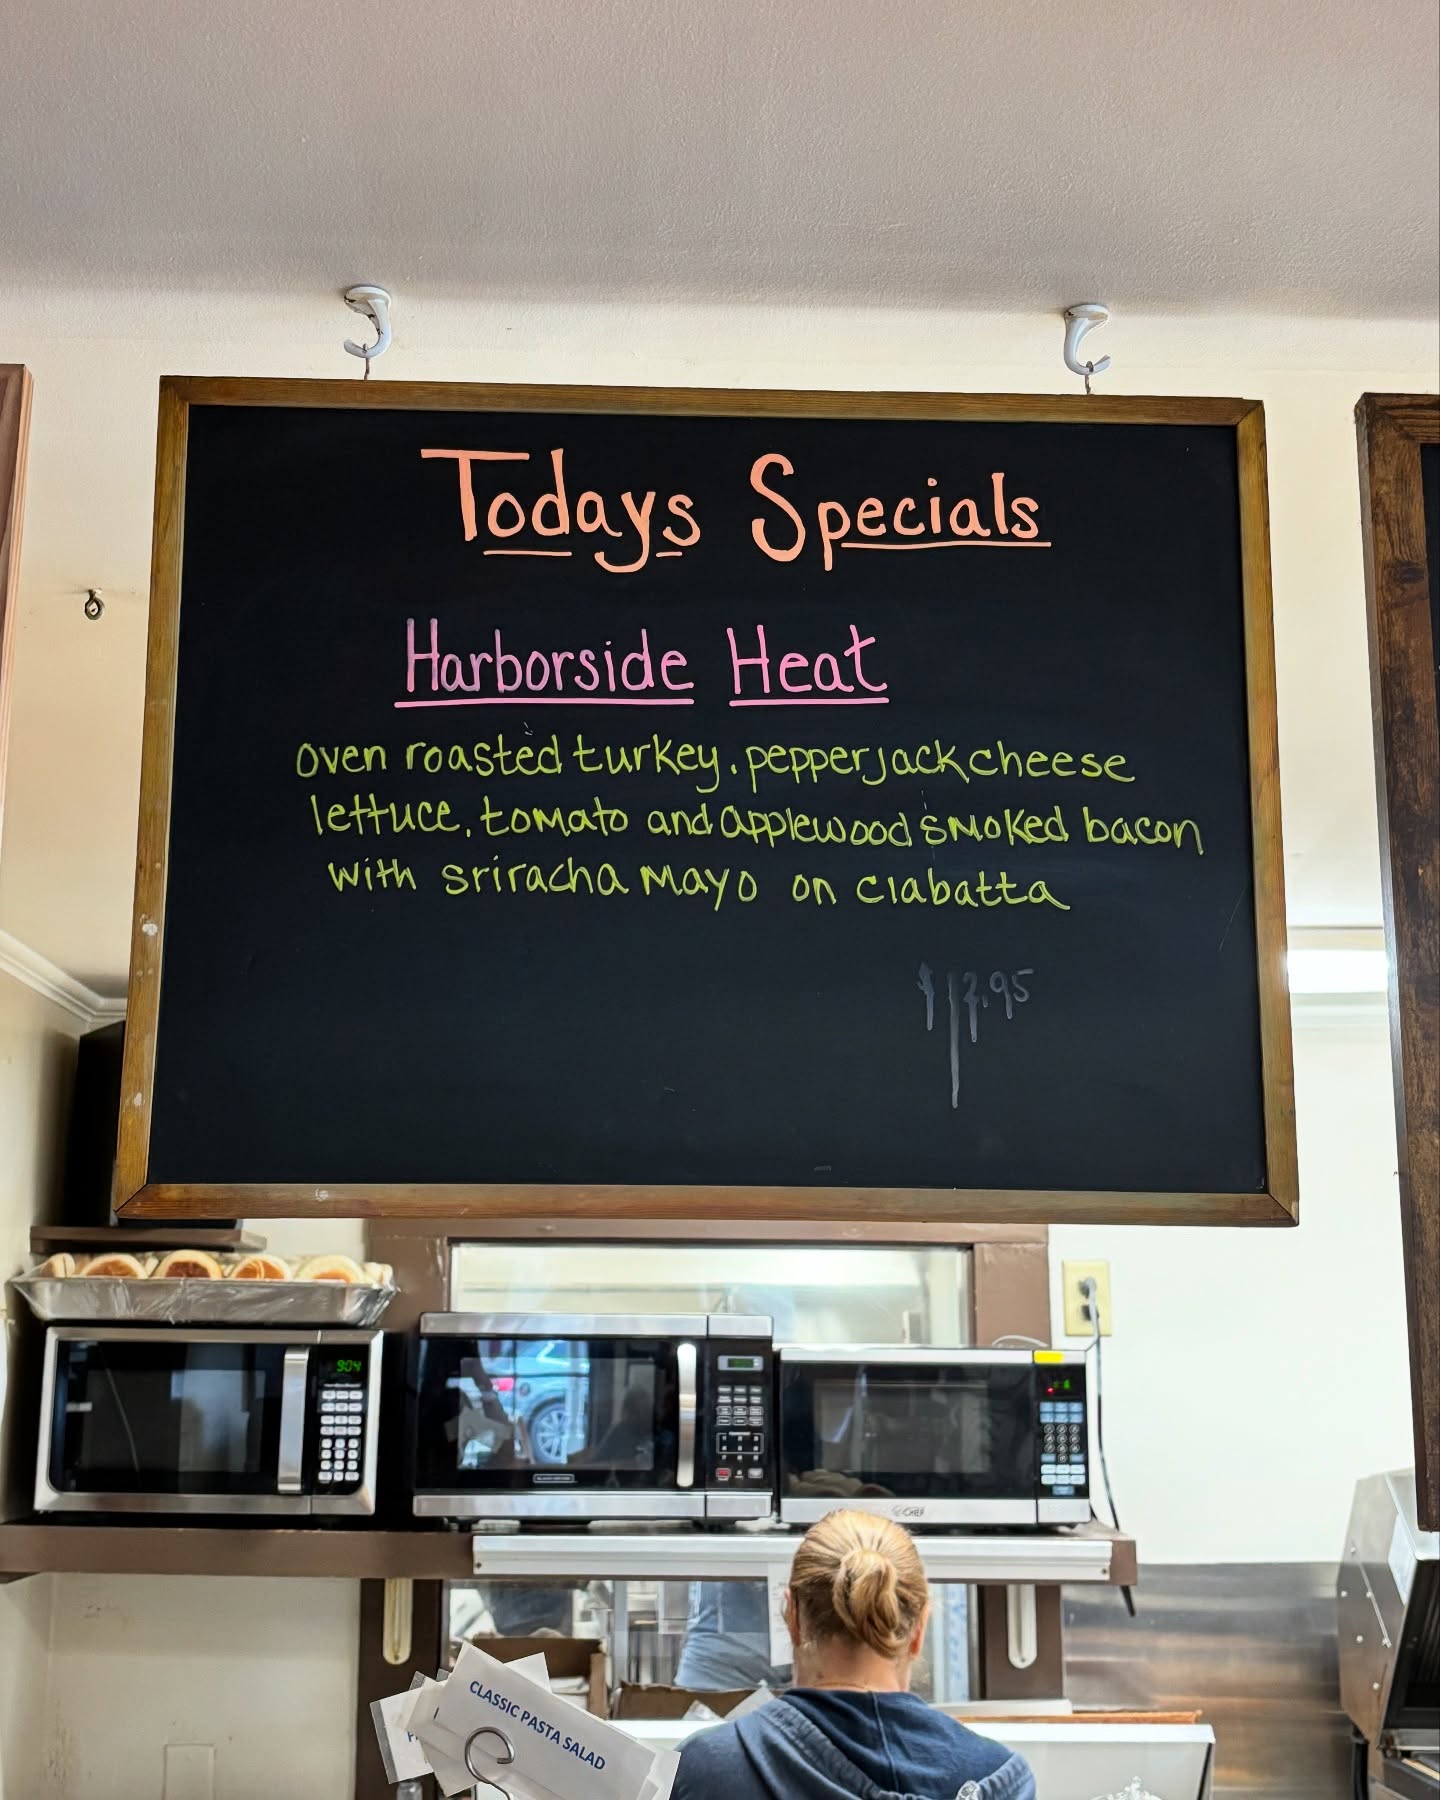 Todays Specials
Harborside Heat
oven roasted turkey, pepperjack cheese
lettuce, tomato and applewood smoked bacon
with sriracha mayo on ciabatta
9:04
CLASSIC PASTA SALAD